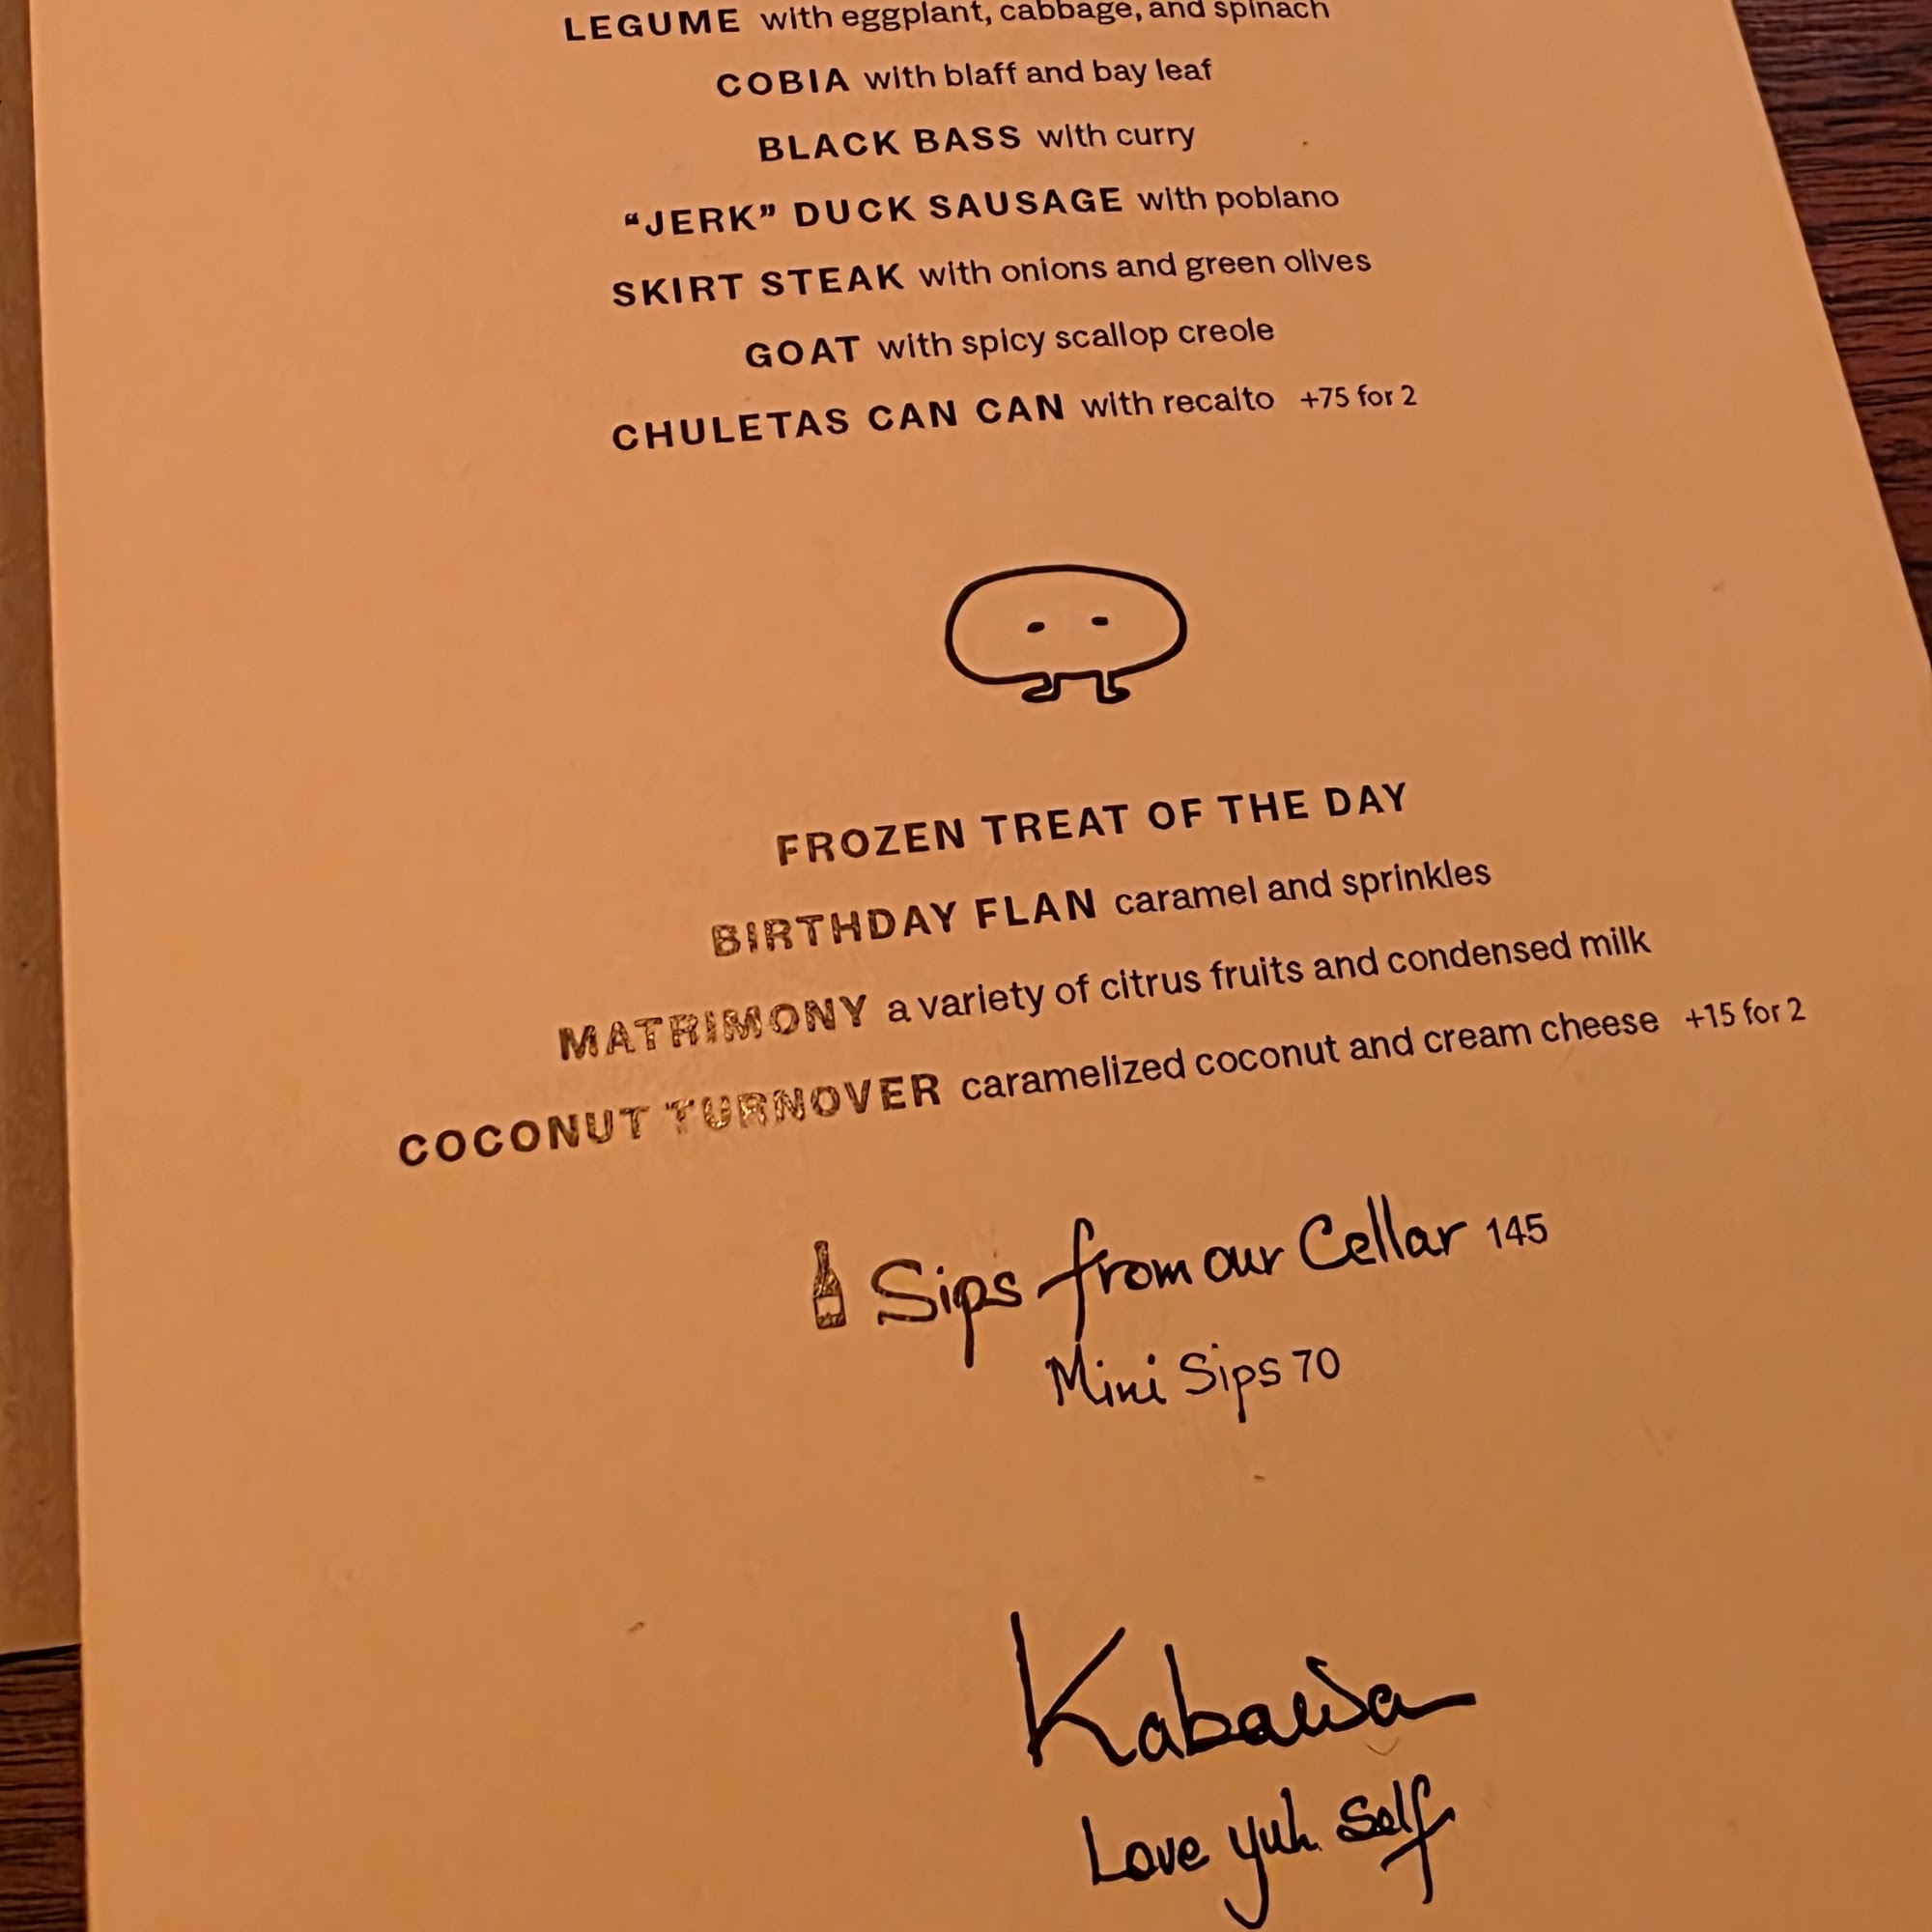 LEGUME with eggplant, cabbage, and spinach
COBIA with blaff and bay leaf
BLACK BASS with curry
“JERK” DUCK SAUSAGE with poblano
SKIRT STEAK with onions and green olives
GOAT with spicy scallop creole
CHULETAS CAN CAN with recaito +75 for 2
FROZEN TREAT OF THE DAY
BIRTHDAY FLAN caramel and sprinkles
MATRIMONY a variety of citrus fruits and condensed milk
COCONUT TURNOVER caramelized coconut and cream cheese +15 for 2
Sips from our Cellar 145
Mini Sips 70
Kabawa
Love yuh self